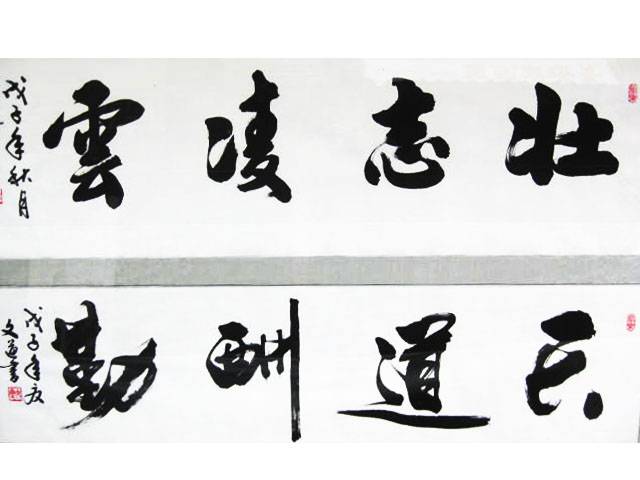 壮志凌雲
戊子年秋月
天道酬勤
戊子年夏
文道書